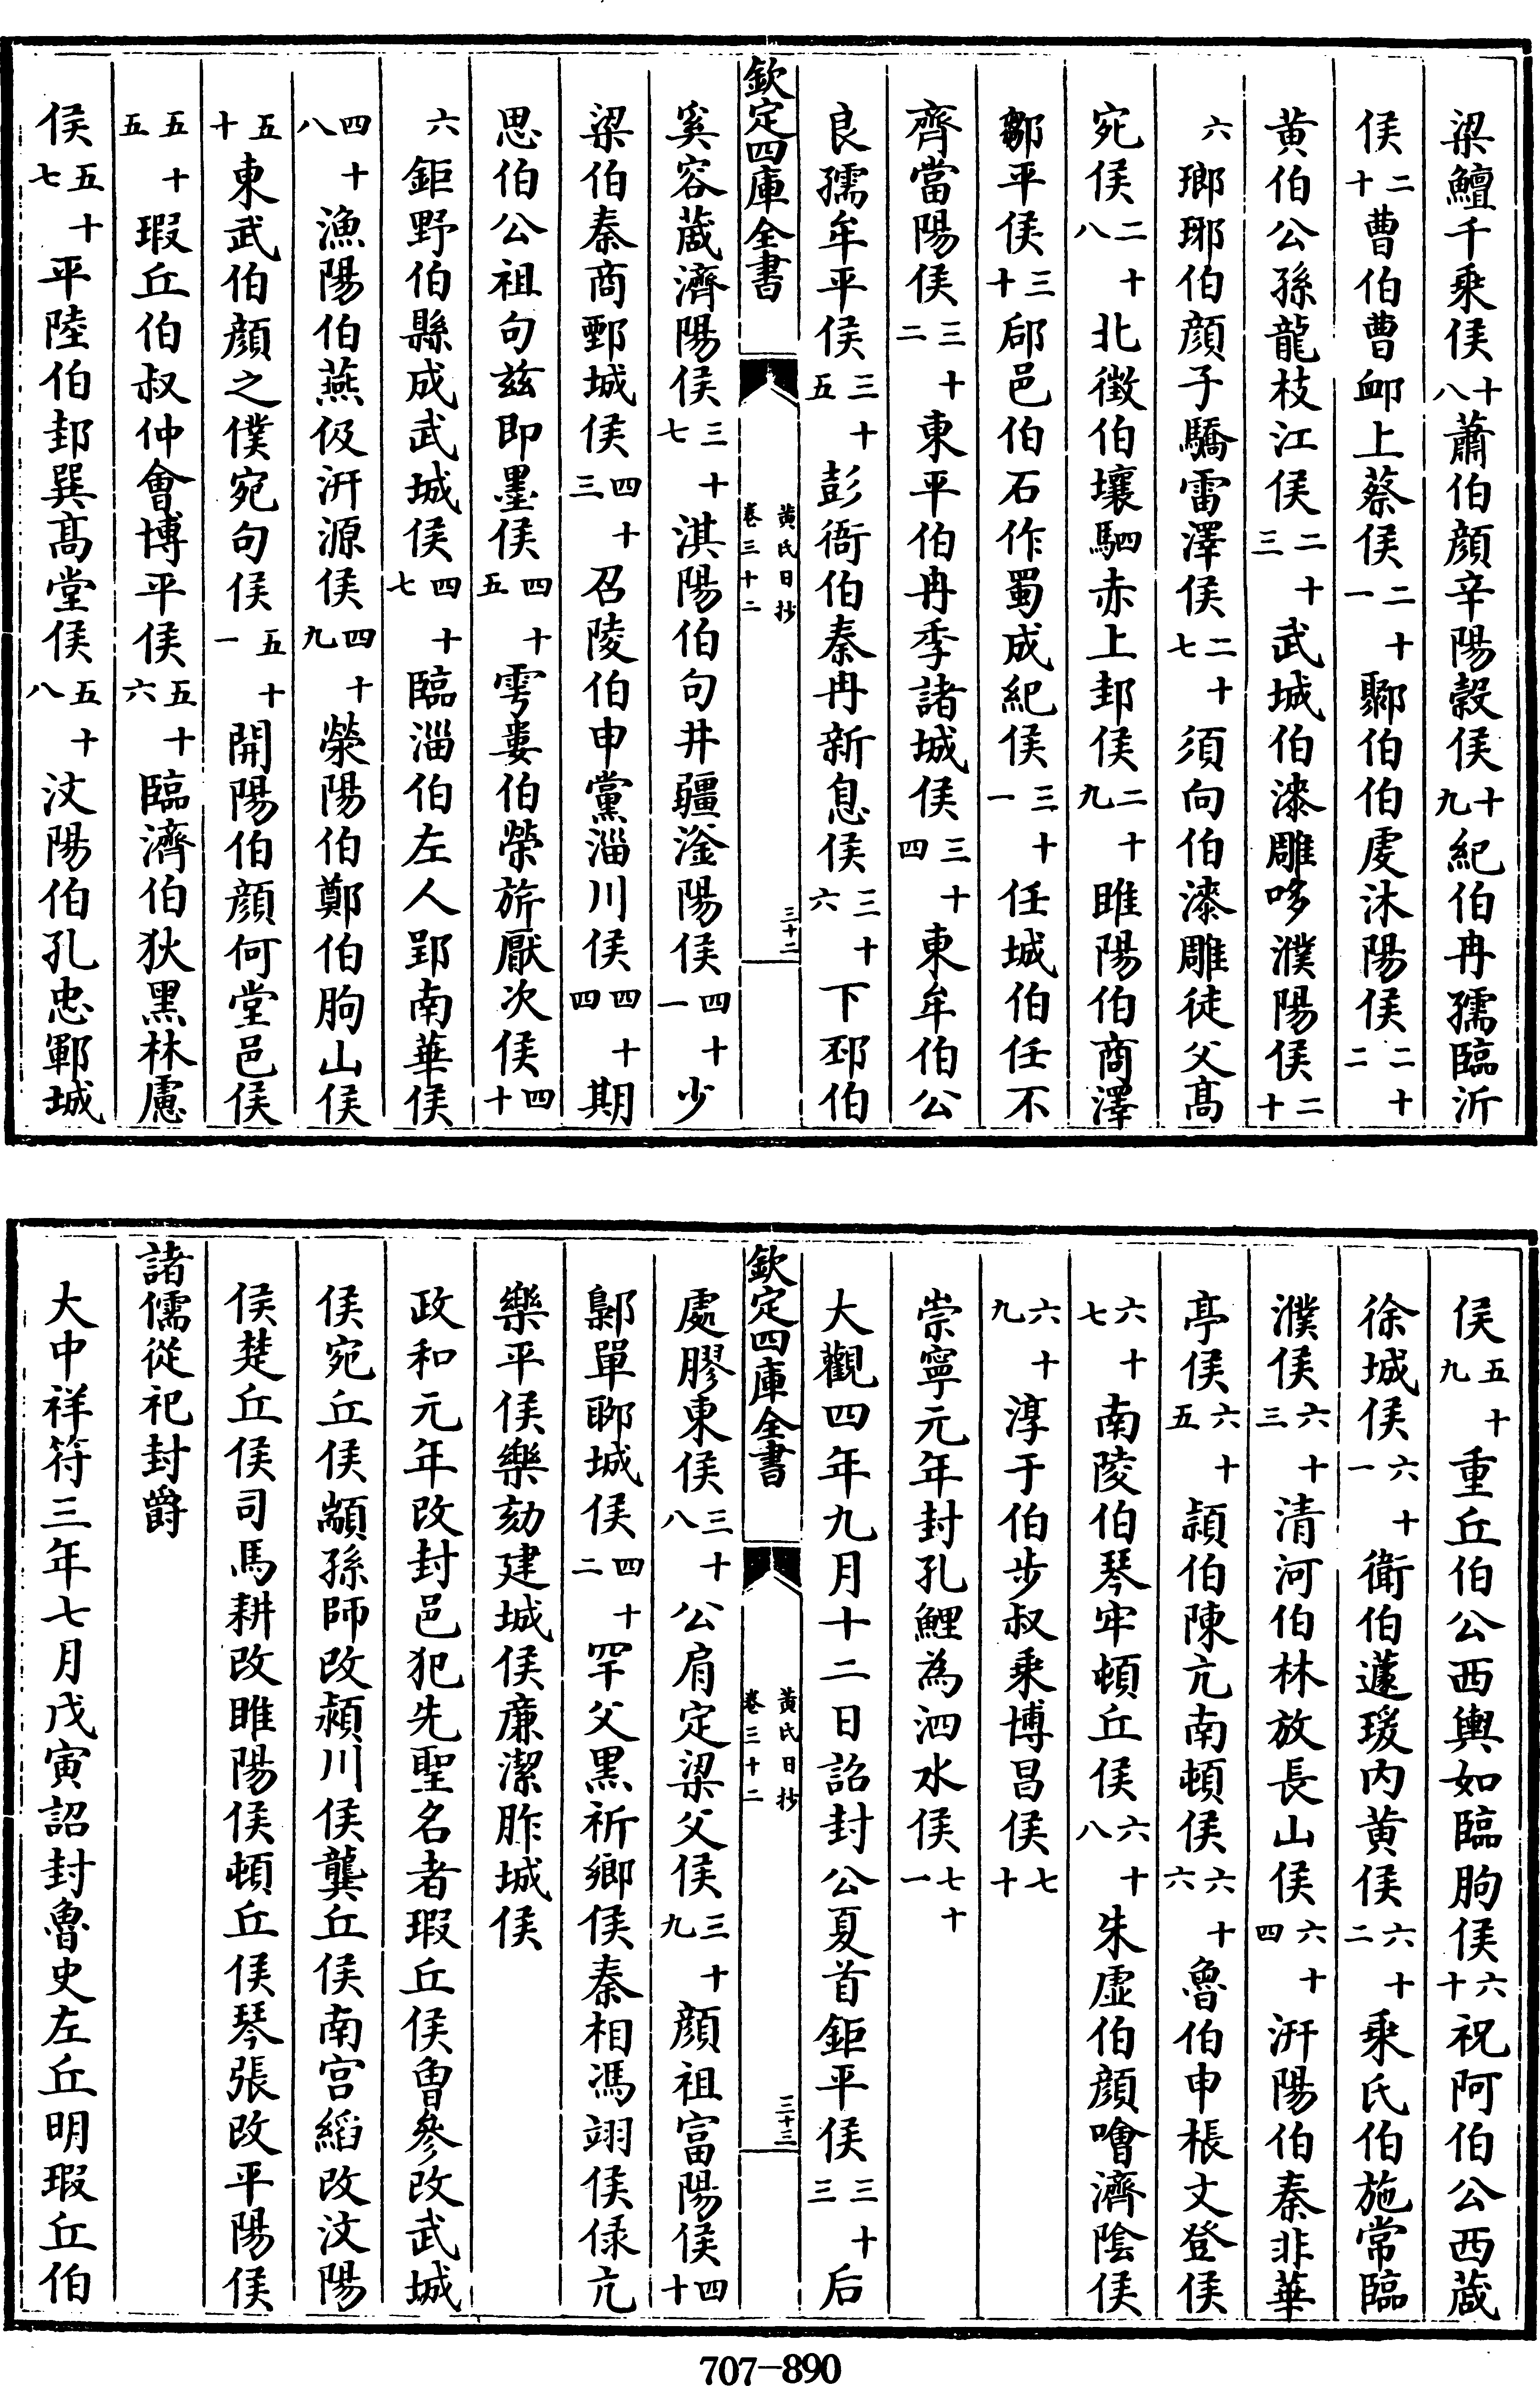 梁鱣千乘侯十八蕭伯顔辛陽穀侯十九紀伯冉孺臨沂
侯二十曹伯曹䘏上蔡侯二十一鄹伯伯虔沐陽侯二十二
黄伯公孫龍枝江侯二十三武城伯漆雕哆濮陽侯二十
六瑯琊伯顔子驕雷澤侯二十七須向伯漆雕徒父髙
宛侯二十八北徵伯壤駟赤上邽侯二十九睢陽伯商澤
鄒平侯三十郈邑伯石作蜀成紀侯三十一任城伯任不
齊當陽侯三十二東平伯冉季諸城侯三十四東牟伯公
良孺牟平侯三十五彭衙伯秦冉新息侯三十六下邳伯
欽定四庫全書
黄氏日抄
卷三十二
三十二
奚容蒧濟陽侯三十七淇陽伯句井疆滏陽侯四十一少
梁伯秦商鄄城侯四十三召陵伯申黨淄川侯四十四期
思伯公祖句兹即墨侯四十五雩婁伯榮旂厭次侯四十
六鉅野伯縣成武城侯四十七臨淄伯左人郢南華侯
四十八漁陽伯燕伋汧源侯四十九滎陽伯鄭伯朐山侯
五十東武伯顔之僕宛句侯五十一開陽伯顔何堂邑侯
五十五瑕丘伯叔仲會博平侯五十六臨濟伯狄黑林慮
侯五十七平陸伯邽巽髙堂侯五十八汶陽伯孔忠鄆城
侯五十九重丘伯公西輿如臨朐侯六十祝阿伯公西蒧
徐城侯六十一衛伯蘧瑗内黄侯六十二乘氏伯施常臨
濮侯六十三清河伯林放長山侯六十四汧陽伯秦非華
亭侯六十五潁伯陳亢南頓侯六十六魯伯申棖文登侯
六十七南陵伯琴牢頓丘侯六十八朱虚伯顔噲濟隂侯
六十九淳于伯步叔乘博昌侯七十
崇寧元年封孔鯉為泗水侯七十一
大觀四年九月十二日詔封公夏首鉅平侯三十三后
欽定四庫全書
黄氏日抄
卷三十二
三十三
處膠東侯三十八公肩定梁父侯三十九顔祖富陽侯四十
鄡單聊城侯四十二罕父黒祈鄉侯秦相馮翊侯𠉀亢
樂平侯樂欬建城侯廉潔胙城侯
政和元年改封邑犯先聖名者瑕丘侯曽參改武城
侯宛丘侯顓孫師改潁川侯龔丘侯南宫縚改汶陽
侯楚丘侯司馬耕改睢陽侯頓丘侯琴張改平陽侯
諸儒從祀封爵
大中祥符三年七月戊寅詔封魯史左丘明瑕丘伯
707-890